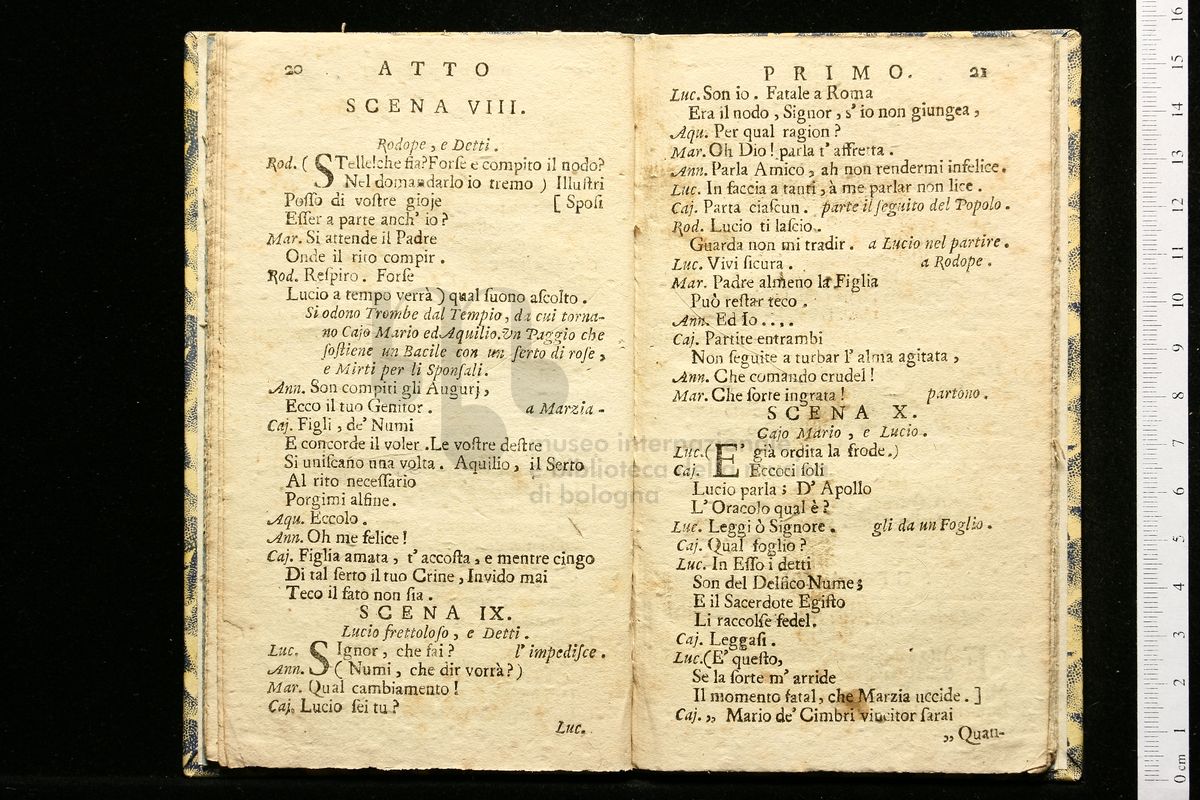 20 ATTO
SCENA VIII.
Rodope, e Detti.
Rod. ( STelle!che fia?Forſe e compito il nodo?
Nel domandarlo io tremo ) Illuſtri
Poſſo di voſtre gioje [ Spoſi
Eſſer a parte anch' io?
Mar. Si attende il Padre
Onde il rito compir.
Rod. Reſpiro. Forſe
Lucio a tempo verrà ) qual ſuono aſcolto.
Si odono Trombe dal Tempio, da cui torna-
no Cajo Mario ed Aquilio.Un Paggio che
ſoſtiene un Bacile con un ſerto di roſe,
e Mirti per li Sponſali.
Ann. Son compiti gli Augurj,
Ecco il tuo Genitor. a Marzia-
Caj. Figli, de' Numi
E concorde il voler.Le voſtre deſtre
Si uniſcano una volta. Aquilio, il Serto
Al rito neceſſario
Porgimi alfine.
Aqu. Eccolo.
Ann. Oh me felice!
Caj. Figlia amata, t' accoſta, e mentre cingo
Di tal ſerto il tuo Crine, Invido mai
Teco il fato non ſia.
SCENA IX.
Lucio frettoloſo, e Detti.
Luc. SIgnor, che fai? l' impediſce.
Ann. ( Numi, che dir vorrà?)
Mar. Qual cambiamento!
Caj. Lucio ſei tu?
Luc.
PRIMO. 21
Luc. Son io. Fatale a Roma
Era il nodo, Signor, s' io non giungea,
Aqu. Per qual ragion?
Mar. Oh Dio! parla t' affretta.
Ann. Parla Amico, ah non rendermi infelice.
Luc. In faccia a tanti, à me parlar non lice.
Caj. Parta ciaſcun. parte il ſeguito del Popolo.
Rod. Lucio ti laſcio.
Guarda non mi tradir. a Lucio nel partire.
Luc. Vivi ſicura. a Rodope.
Mar. Padre almeno la Figlia
Può reſtar teco.
Ann. Ed Io....
Caj. Partite entrambi
Non ſeguite a turbar l' alma agitata,
Ann. Che comando crudel!
Mar. Che ſorte ingrata! partono.
SCENA X.
Cajo Mario, e Lucio.
Luc.( E' già ordita la frode.)
Caj. Eccoci ſoli
Lucio parla; D' Apollo
L' Oracolo qual è?
Luc. Leggi ò Signore. gli da un Foglio.
Caj. Qual foglio?
Luc. In Eſſo i detti
Son del Delfico Nume;
E il Sacerdote Egiſto
Li raccolſe fedel.
Caj. Leggaſi.
Luc.(E' queſto,
Se la ſorte m' arride
Il momento fatal, che Marzia uccide.]
Caj. ,, Mario de' Cimbri vincitor ſarai
,, Quan-
museo internazionale
e biblioteca della musica
di bologna
0 cm 1 2 3 4 5 6 7 8 9 10 11 12 13 14 15 16